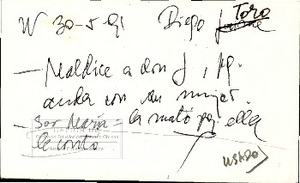 W 30-5-91 Diego Toro
— Maldice a don J, pq.
anda con su mujer.
— Sor María = la mató pq ella
le contó
USADO